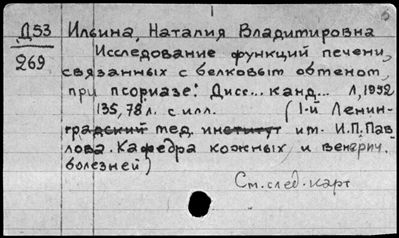 Д53 Ильина, Наталия Владимировна
269 Исследование функций печени,
связанных с белковым обменом,
при псориазе: Дисс... канд... Л, 1952
135, 78 л. с илл. (1-й Ленин-
градский мед. институт им. И.П. Пав-
лова. Кафедра кожных и венерич.
болезней)
См. след. карт